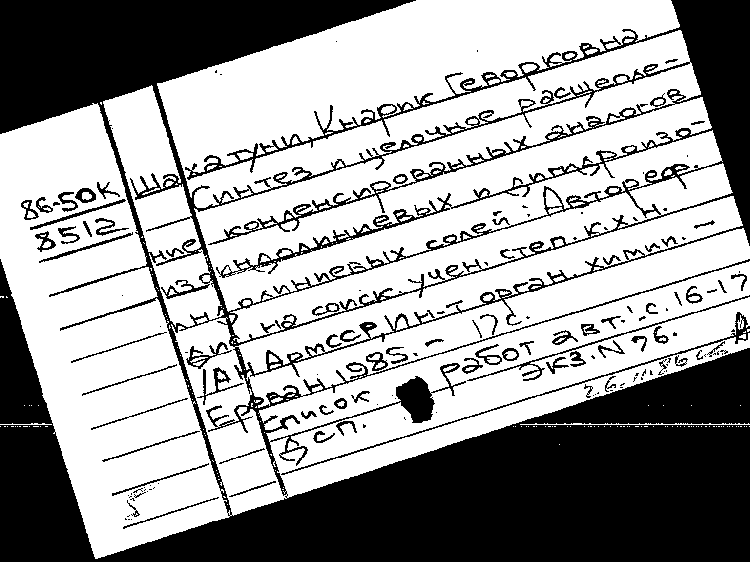 86-50К
8512
Шахатуни, Кнарик Геворковна.
Синтез и щелочное расщепле-
ние конденсированных аналогов
изоиндолиниевых и дигидроизо-
индолиниевых солей: Автореф.
дис. на соиск. учен. степ. к.х.н.
/АН АрмССР, Ин-т орган. химии. —
Ереван, 1985. - 17с.
Список работ авт.: с. 16-17
Дсп. Экз. N 76.